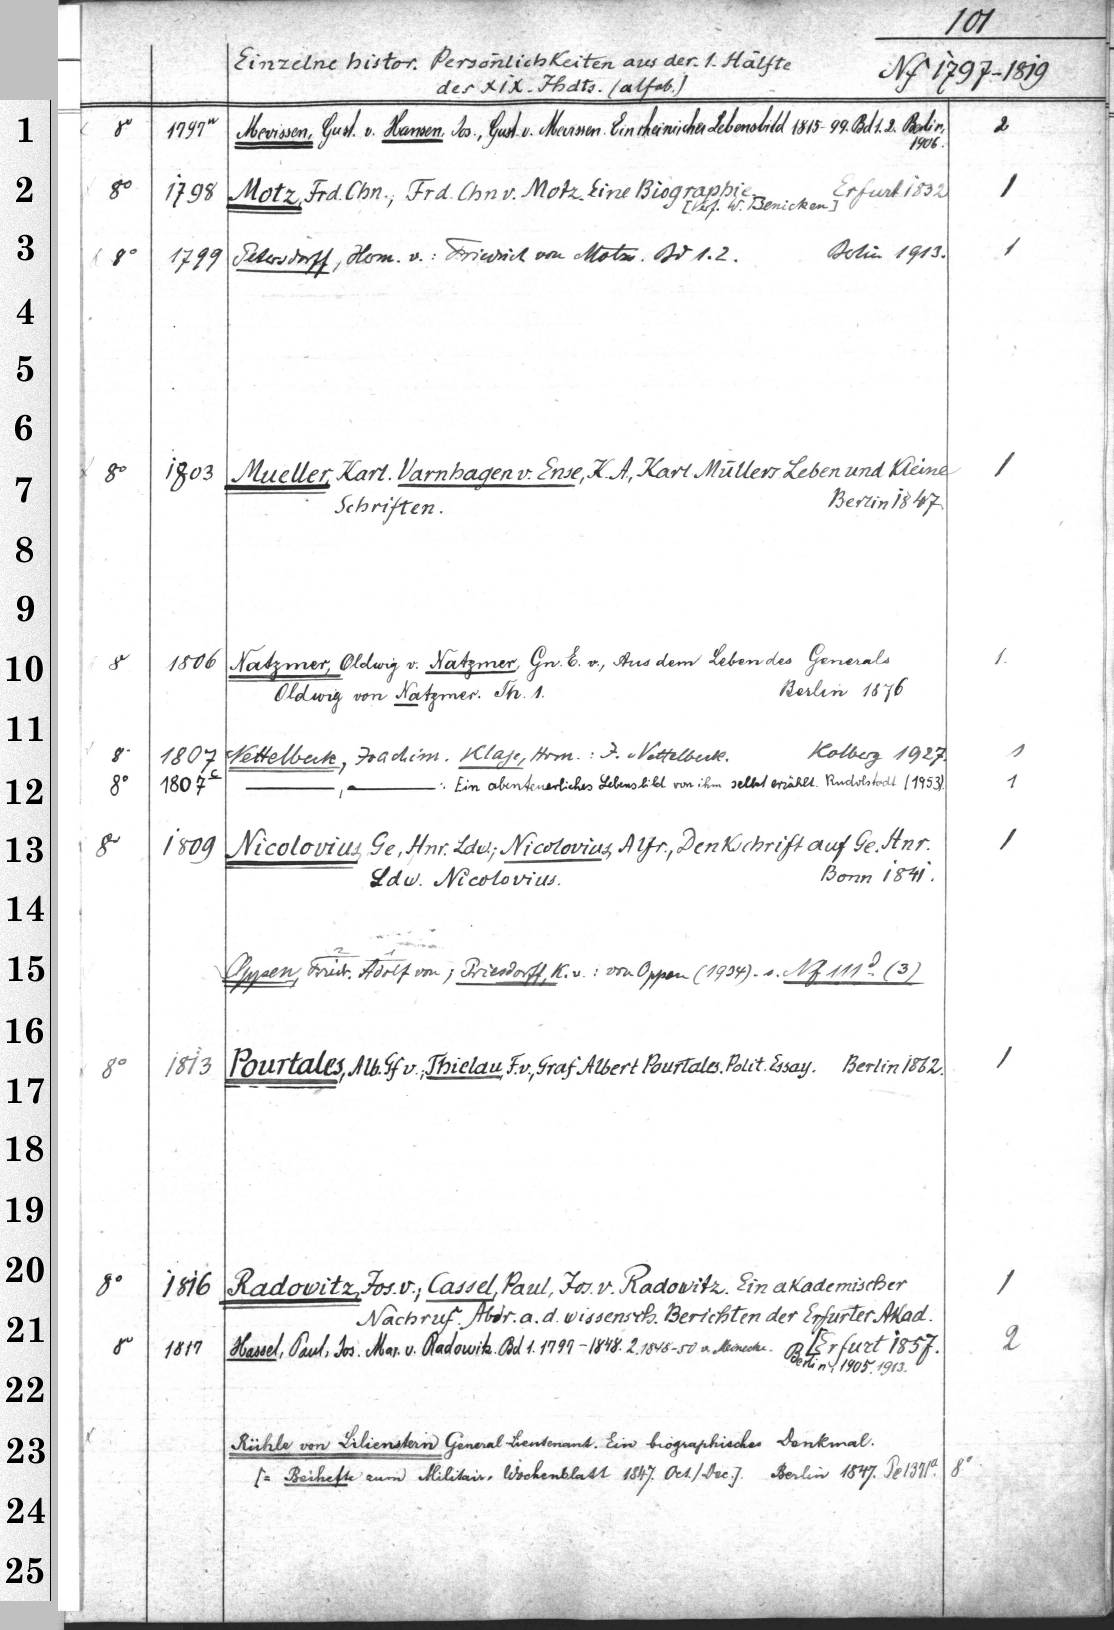 101
Einzelne histor. Persönlichkeiten aus der 1. Hälfte
des XIX. Jhdts. (alfab.)
Nf 1797-1819
1
8° 1797ⁿ Mevissen, Gust. v. Hansen, Jos., Gust. v. Mevissen. Ein rheinisches Lebensbild 1815-99. Bd 1.2. Berlin, 2
1906.
2
8° 1798 Motz, Frd. Chn.; Frd. Chn v. Motz. Eine Biographie. Erfurt 1832 1
[Vrf. W. Benicken]
3
8° 1799 Petersdorff, Herm. v.: Friedrich von Motz. Bd 1.2. Berlin 1913. 1
4
5
6
8° 1803 Mueller, Karl. Varnhagen v. Ense, K. A., Karl Müllers Leben und Kleine 1
7
Schriften. Berlin 1847.
8
9
10
8° 1806 Natzmer, Oldwig v. Natzmer, Gn. E. v., Aus dem Leben des Generals 1.
Oldwig von Natzmer. Th. 1. Berlin 1876
11
8° 1807 Nettelbeck, Joachim. Klaje, Hrm.: J. Nettelbeck. Kolberg 1927. 1
12
8° 1807ᶜ ———, ———: Ein abenteuerliches Lebensbild von ihm selbst erzählt. Rudolstadt (1953). 1
13
8° 1809 Nicolovius, Ge. Hnr. Ldw.; Nicolovius, Alfr., Denkschrift auf Ge. Hnr. 1
Ldw. Nicolovius. Bonn 1841.
14
15
Oppen, Friedr. Adolf von; Priesdorff, K. v.: von Oppen (1934). s. Nf 111ᵈ (3)
16
8° 1813 Pourtales, Alb. Gf v.; Thielau, F. v., Graf Albert Pourtales. Polit. Essay. Berlin 1862. 1
17
18
19
20
8° 1816 Radowitz, Jos. v.; Cassel, Paul, Jos. v. Radowitz. Ein akademischer 1
Nachruf. Abdr. a. d. wissensch. Berichten der Erfurter Akad.
21
[Erfurt 1857.
8° 1817 Hassel, Paul, Jos. Mar. v. Radowitz. Bd 1. 1797-1848. 2. 1848-50 v. Meinecke. Berlin, 1905. 1913. 2
22
23
Rühle von Lilienstern General-Lieutenant. Ein biographisches Denkmal.
[= Beihefte zum Militair-Wochenblatt 1847. Oct./Dec.]. Berlin 1847. Pe 1371ᵃ. 8°
24
25